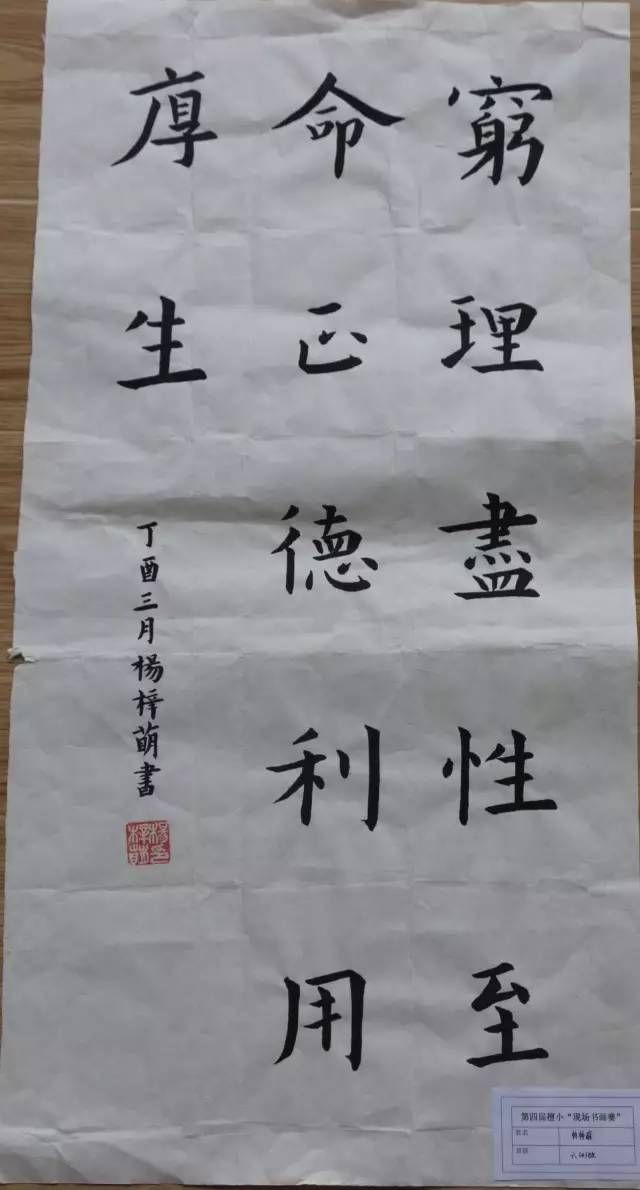 窮理盡性至
命正德利用
厚生
丁酉三月楊梓萌書
楊梓萌印
第四届檀小“现场书画赛”
姓名
班级